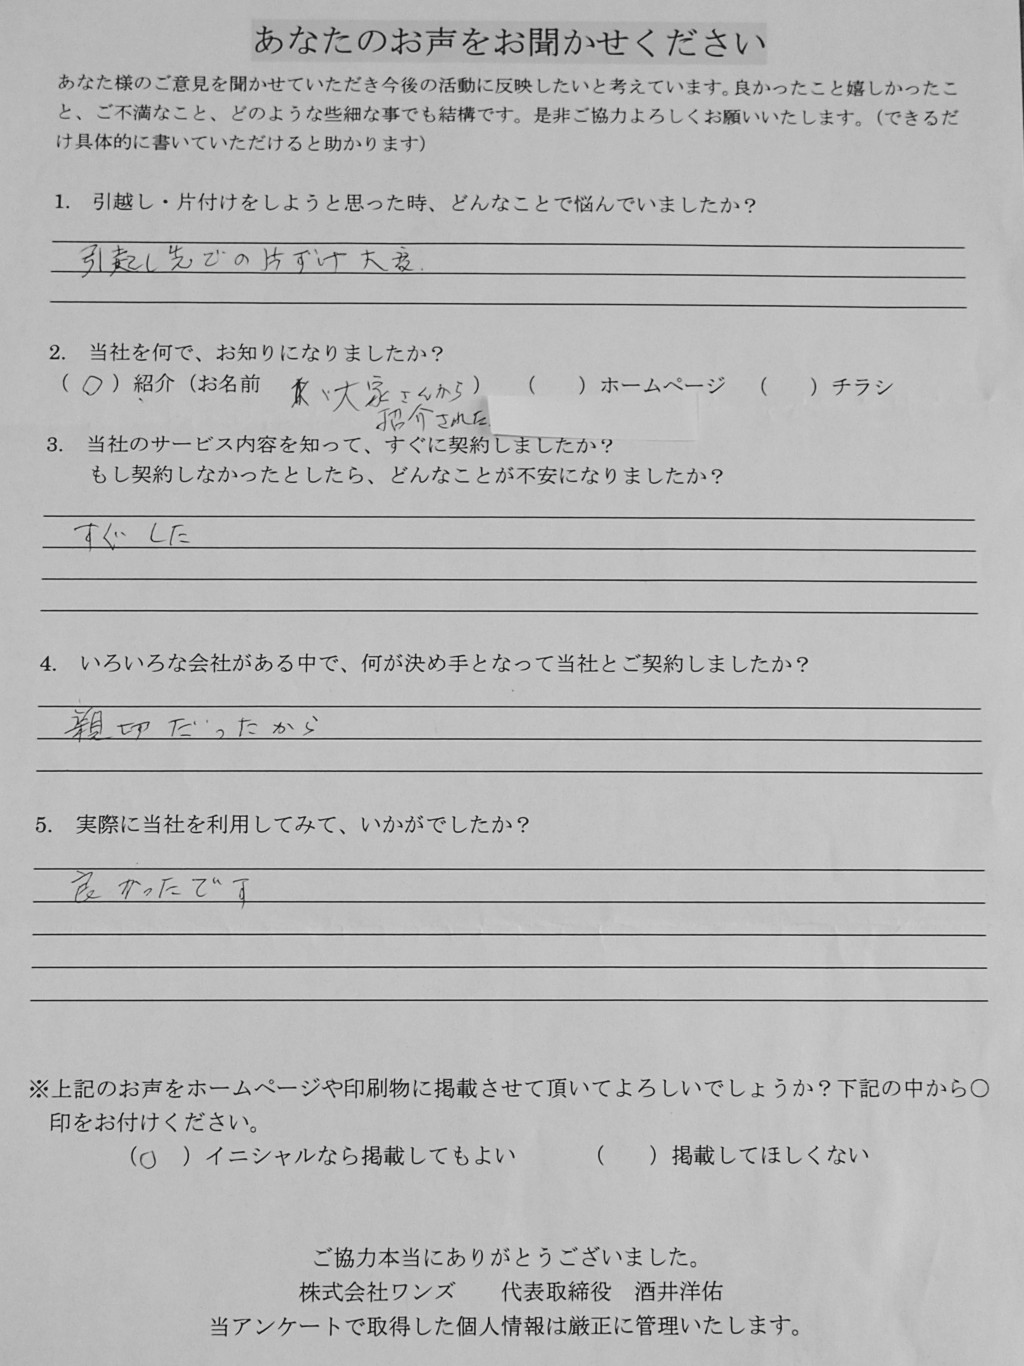 あなたのお声をお聞かせください
あなた様のご意見を聞かせていただき今後の活動に反映したいと考えています。良かったこと嬉しかったこ
と、ご不満なこと、どのような些細な事でも結構です。是非ご協力よろしくお願いいたします。（できるだ
け具体的に書いていただけると助かります）
1. 引越し・片付けをしようと思った時、どんなことで悩んでいましたか？
引越し先での片ずけ大変.
2. 当社を何で、お知りになりましたか？
（○）紹介（お名前 大家さんから ）（ ）ホームページ （ ）チラシ
紹介された.
3. 当社のサービス内容を知って、すぐに契約しましたか？
もし契約しなかったとしたら、どんなことが不安になりましたか？
すぐした
4. いろいろな会社がある中で、何が決め手となって当社とご契約しましたか？
親切だったから
5. 実際に当社を利用してみて、いかがでしたか？
良かったです
※上記のお声をホームページや印刷物に掲載させて頂いてよろしいでしょうか？下記の中から○
印をお付けください。
（○）イニシャルなら掲載してもよい （ ）掲載してほしくない
ご協力本当にありがとうございました。
株式会社ワンズ 代表取締役 酒井洋佑
当アンケートで取得した個人情報は厳正に管理いたします。